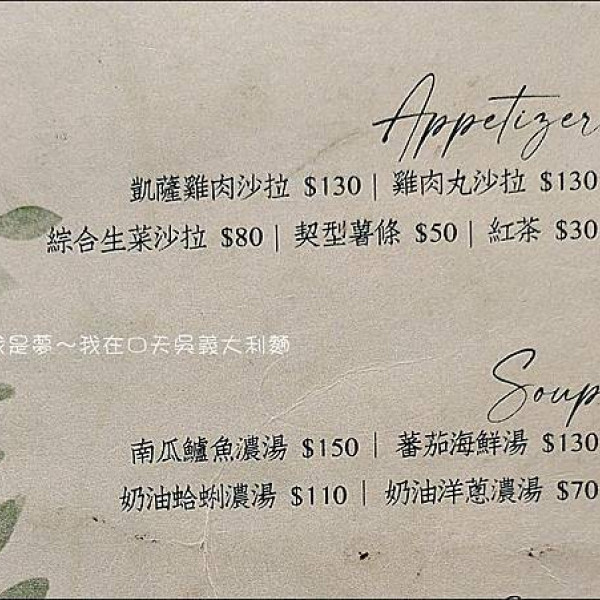 Appetizer
凱薩雞肉沙拉 $130 | 雞肉丸沙拉 $130
綜合生菜沙拉 $80 | 契型薯條 $50 | 紅茶 $30
是夢～我在口天吳義大利麵
Soup
南瓜鱸魚濃湯 $150 | 蕃茄海鮮湯 $130
奶油蛤蜊濃湯 $110 | 奶油洋蔥濃湯 $70